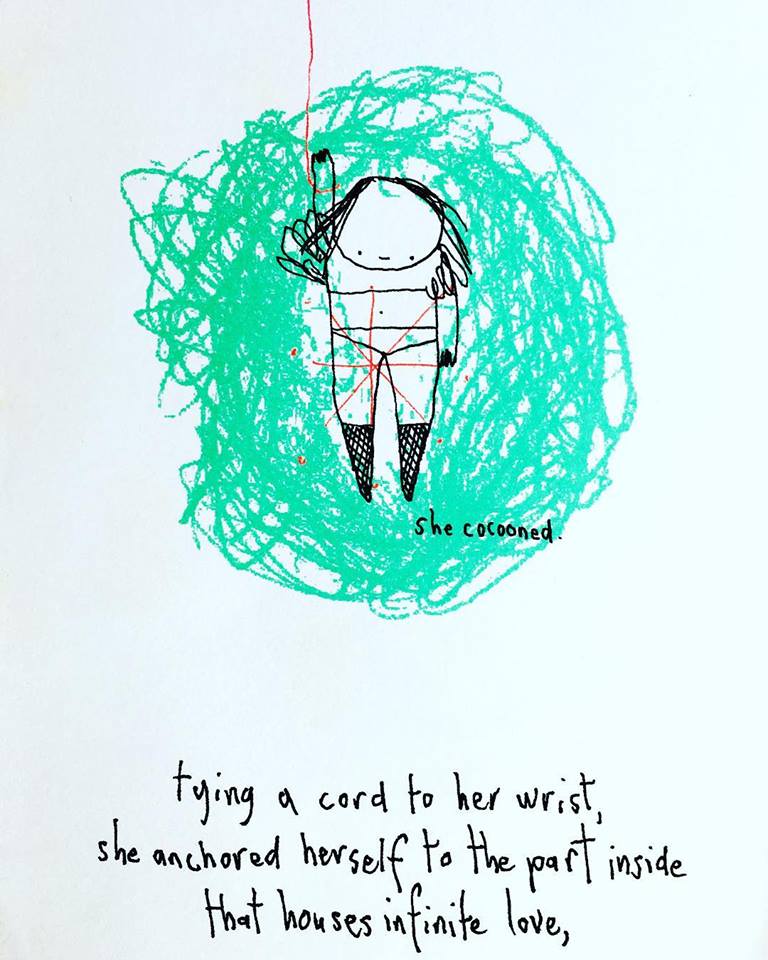 she cocooned.
tying a cord to her wrist,
she anchored herself to the part inside
that houses infinite love,